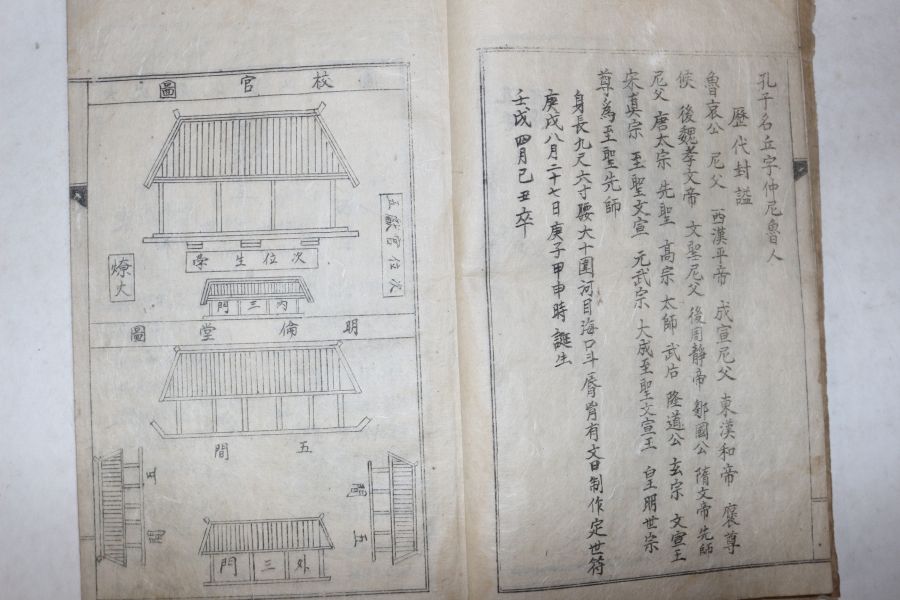 孔子名丘字仲尼魯人
歷代封諡
魯哀公 尼父 西漢平帝 成宣尼父 東漢和帝 褒尊
侯 後魏孝文帝 文聖尼父 後周靜帝 鄒國公 隋文帝 先師
尼父 唐太宗 先聖 高宗 太師 武后 隆道公 玄宗 文宣王
宋真宗 至聖文宣 元武宗 大成至聖文宣王 皇明世宗
尊為至聖先師
身長九尺六寸腰大十圍河目海口斗唇胷有文曰制作定世符
庚戌八月二十七日庚子甲申時誕生
壬戌四月己丑卒
校宮圖
五獻官位次
學生位次
燎火
內三門
明倫堂圖
五間
五間
五間
外三門